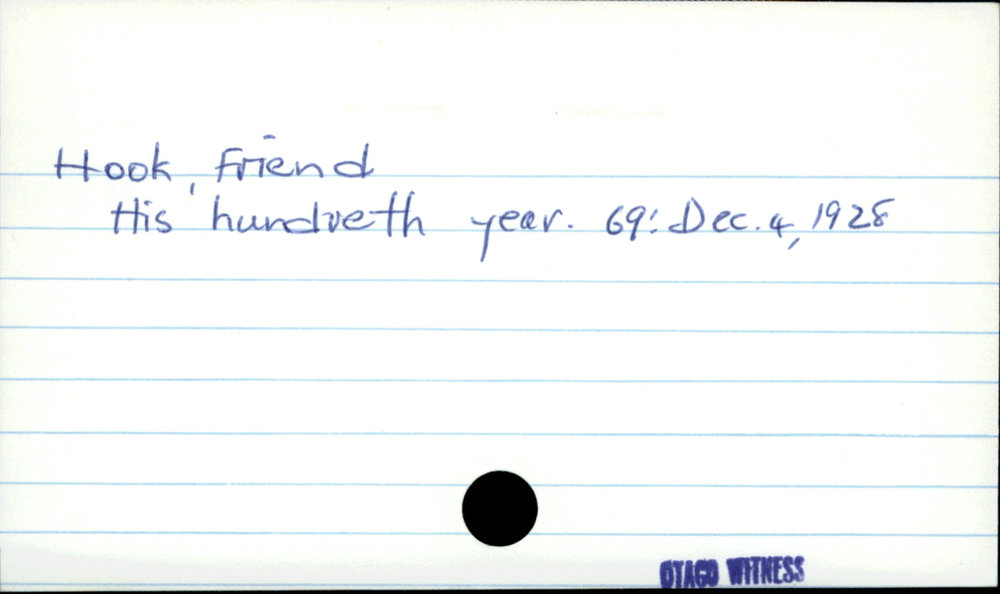 Hook, Friend
His hundreth year. 69: Dec. 4, 1928
OTAGO WITNESS